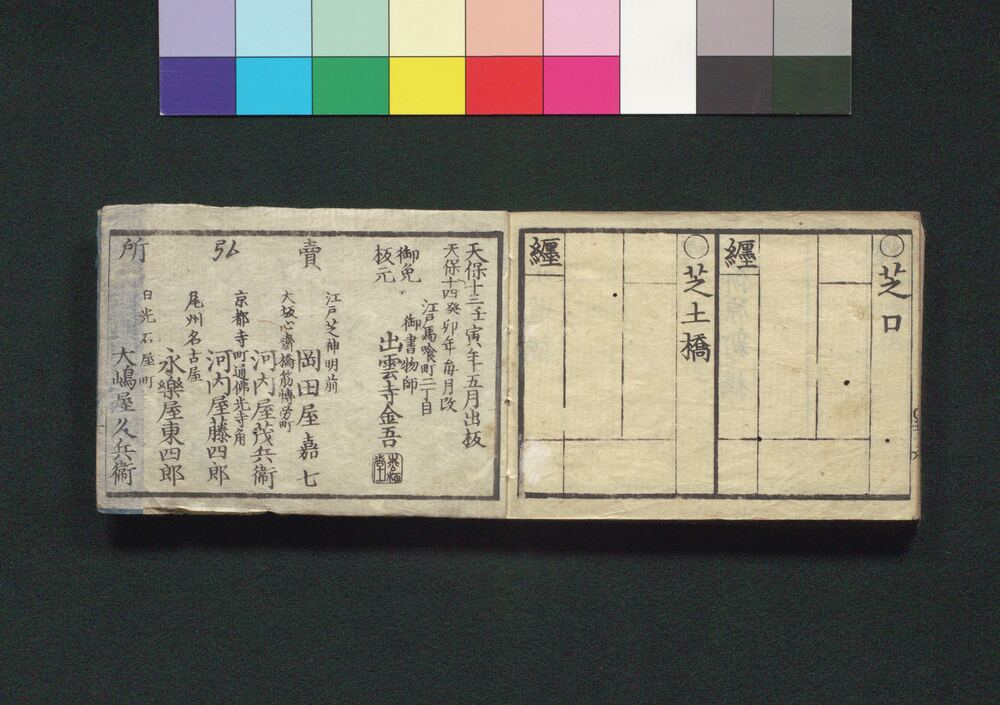 ○芝口
纏
○芝土橋
纏
天保十三壬寅年十五月出板
天保十四癸卯年毎月改
江戸馬喰町二丁目
御書物師
御免
板元
出雲寺金吾
賣
弘
所
江戸芝神明前
岡田屋嘉七
大坂心齋橋筋博労町
河内屋茂兵衛
京都寺町通佛光寺角
河内屋藤四郎
尾州名古屋
永樂屋東四郎
日光石屋町
大嶋屋久兵衛